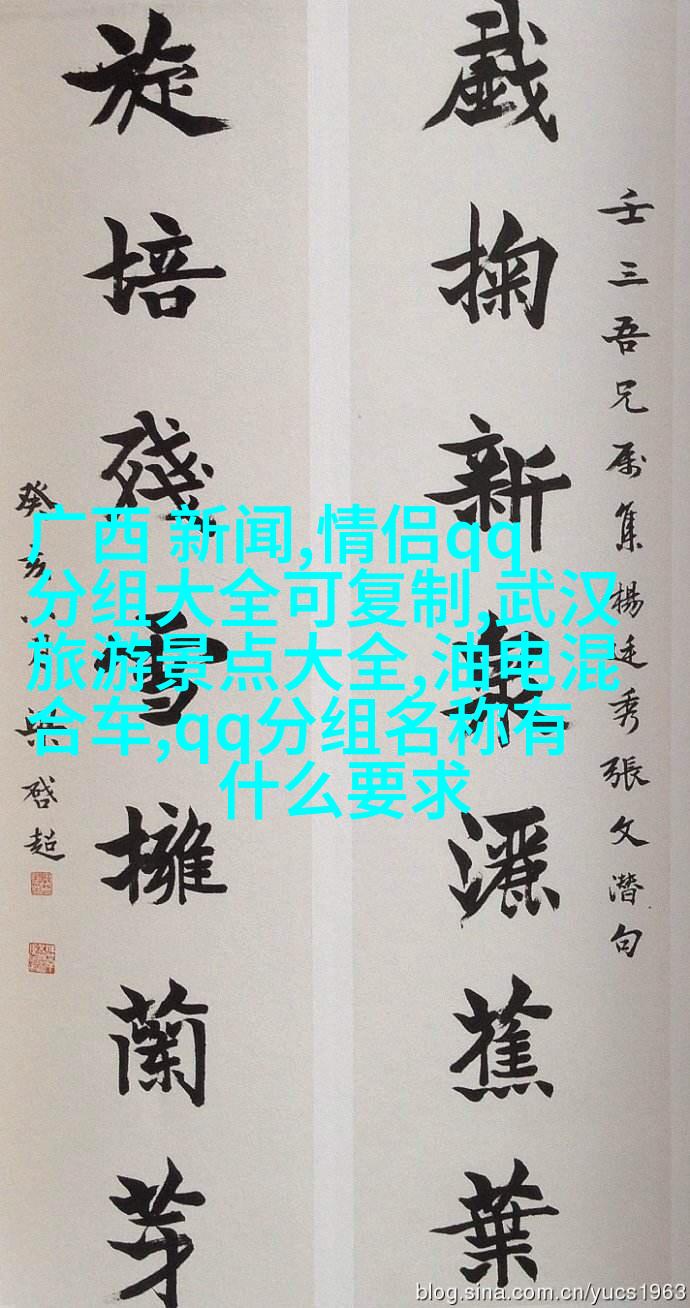 壬三吾兄属集楊廷秀張文潛句
戲掬新泉灑蕉葉
旋培殘雪擁蘭芽
癸亥 梁啓超
广西 新闻,情侣qq
分组大全可复制,武汉
旅游景点大全,油电混
合车,qq分组名称有
什么要求
blog.sina.com.cn/yucs1963